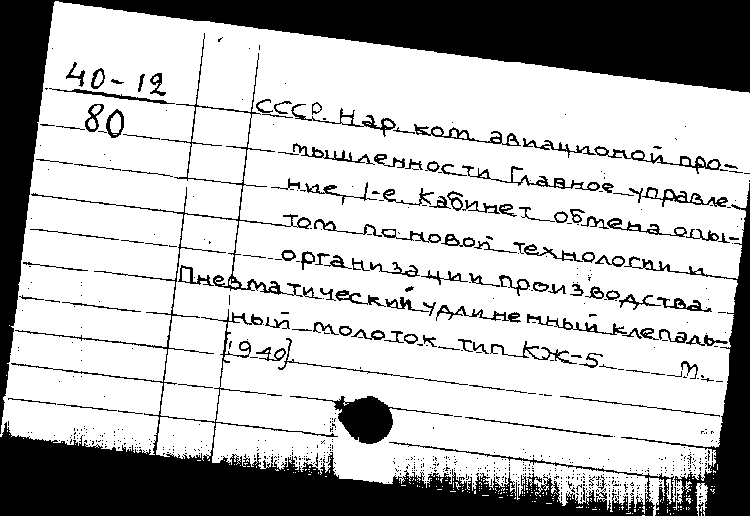 40-12
80
СССР. Нар. ком. авиационой про-
мышленности Главное управле-
ние, 1-е. Кабинет обмена опы-
том по новой технологии и
организации производства.
Пневматический удлиненный клепаль-
ный молоток тип КЖ-5. М.,
[1940].